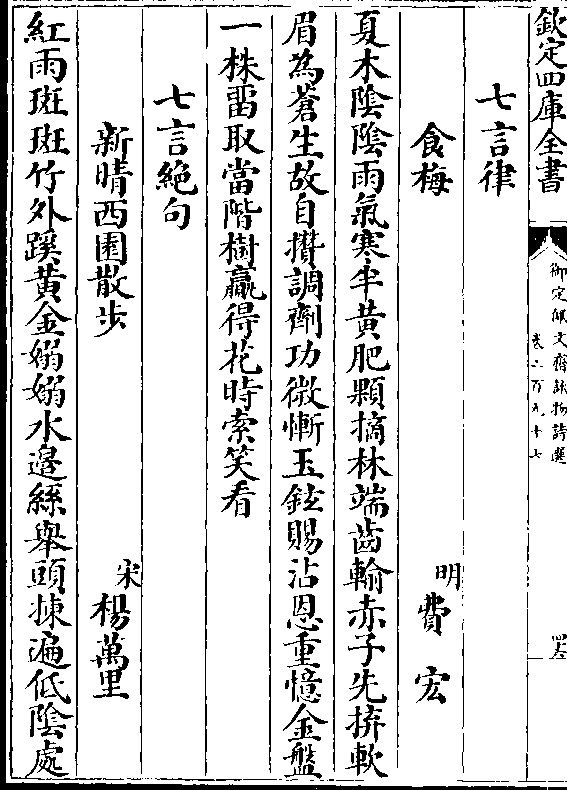 欽定四庫全書
御定佩文齋詠物詩選
卷二百九十七
七言律
食梅
明費宏
夏木陰陰雨氣寒半黃肥顆摘林端齒輸赤子先拚軟
眉為蒼生故自攅調劑功微慚玉鉉賜沾恩重憶金盤
一株留取當階樹贏得花時索笑看
七言絶句
新晴西園散步
宋楊萬里
紅雨斑斑竹外蹊黃金嫋嫋水邉絲舉頭揀遍低陰處